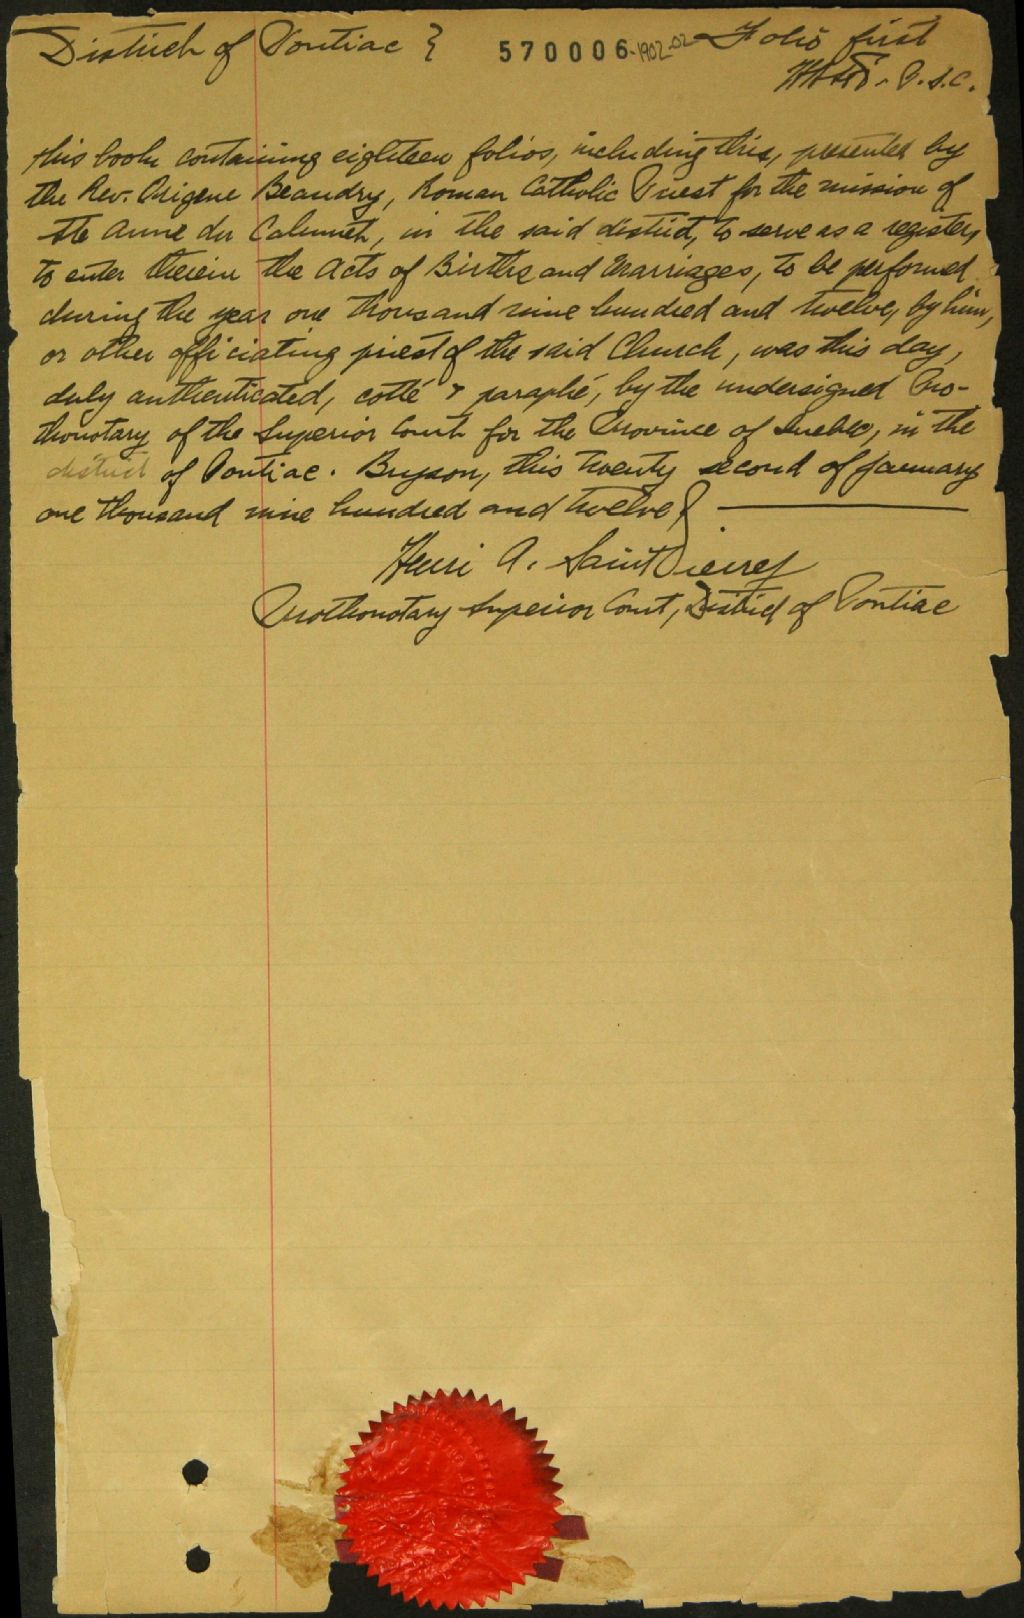 District of Pontiac } 570006-1902-02 Folio first
P.S.C.
this book containing eighteen folios, including this, presented by
the Rev. Origene Beaudry, Roman Catholic Priest for the mission of
Ste Anne du Calumet, in the said district, to serve as a register,
to enter therein the Acts of Births and Marriages, to be performed
during the year one thousand nine hundred and twelve, by him,
or other officiating priest of the said Church, was this day,
duly authenticated, cotté & paraphé, by the undersigned Pro-
thonotary of the Superior Court for the Province of Quebec, in the
district of Pontiac. Bryson, this twenty second of January
one thousand nine hundred and twelve
Henri A. Saint Pierre
Prothonotary Superior Court, District of Pontiac